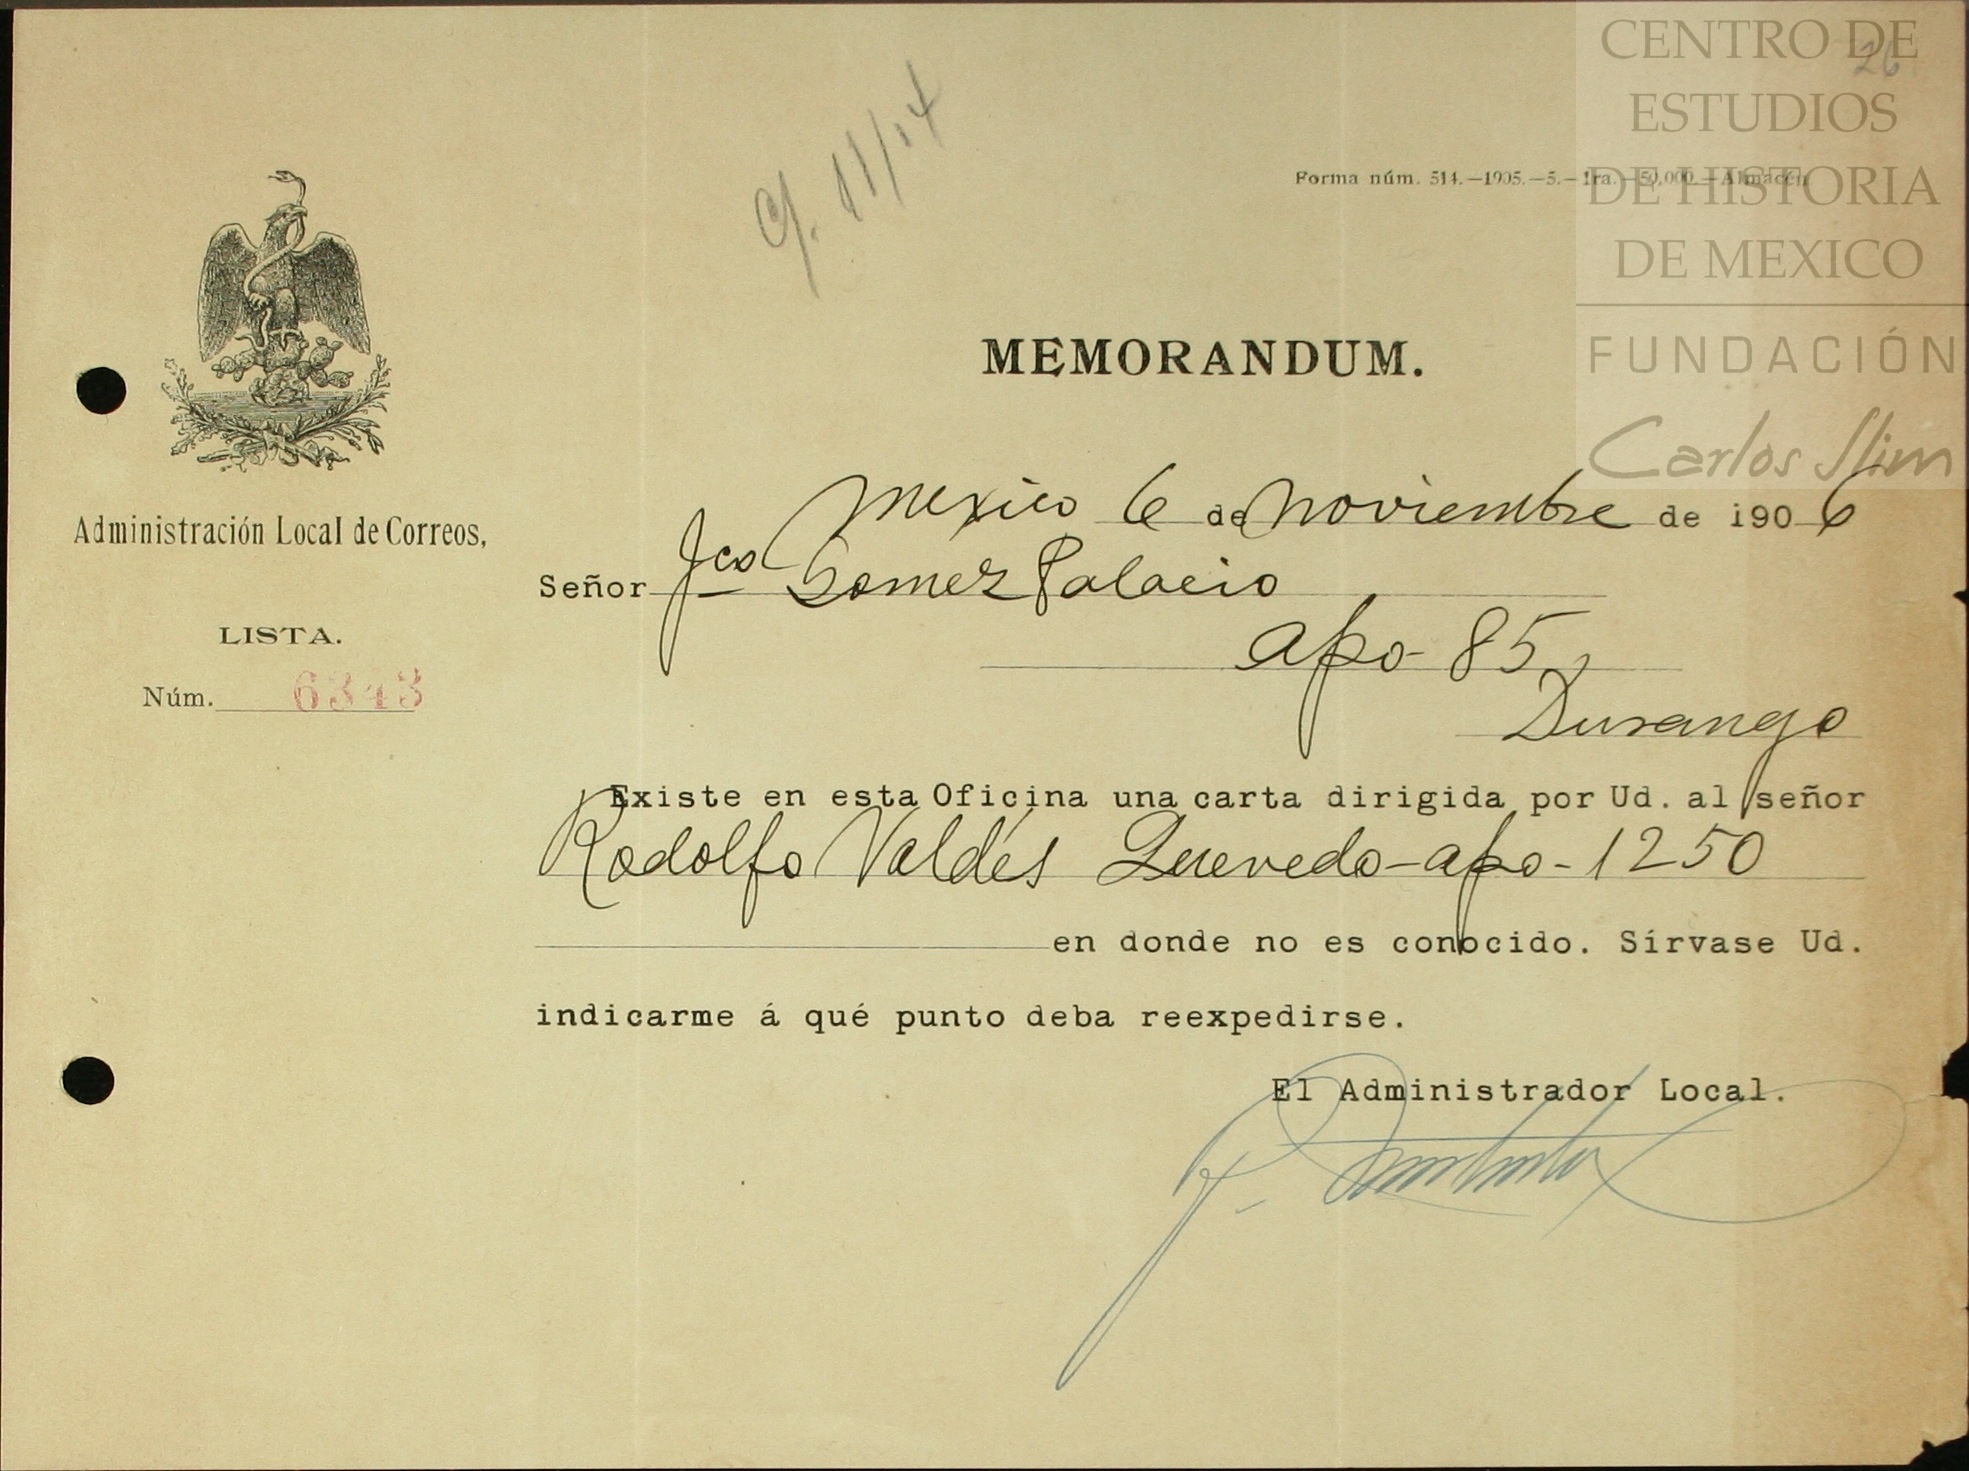 26
C. 11/14
Forma núm. 514.—1905.—5.—1ra.—50,000.—Almacén.
CENTRO DE
ESTUDIOS
DE HISTORIA
DE MEXICO
FUNDACIÓN
Carlos Slim
MEMORANDUM.
Administración Local de Correos,
LISTA.
Núm. 6343
Mexico 6 de Noviembre de 1906
Señor Fco Gomez Palacio
Apo- 85,
Durango
Existe en esta Oficina una carta dirigida por Ud. al señor
Rodolfo Valdés Quevedo-apo-1250
en donde no es conocido. Sírvase Ud.
indicarme á qué punto deba reexpedirse.
El Administrador Local.